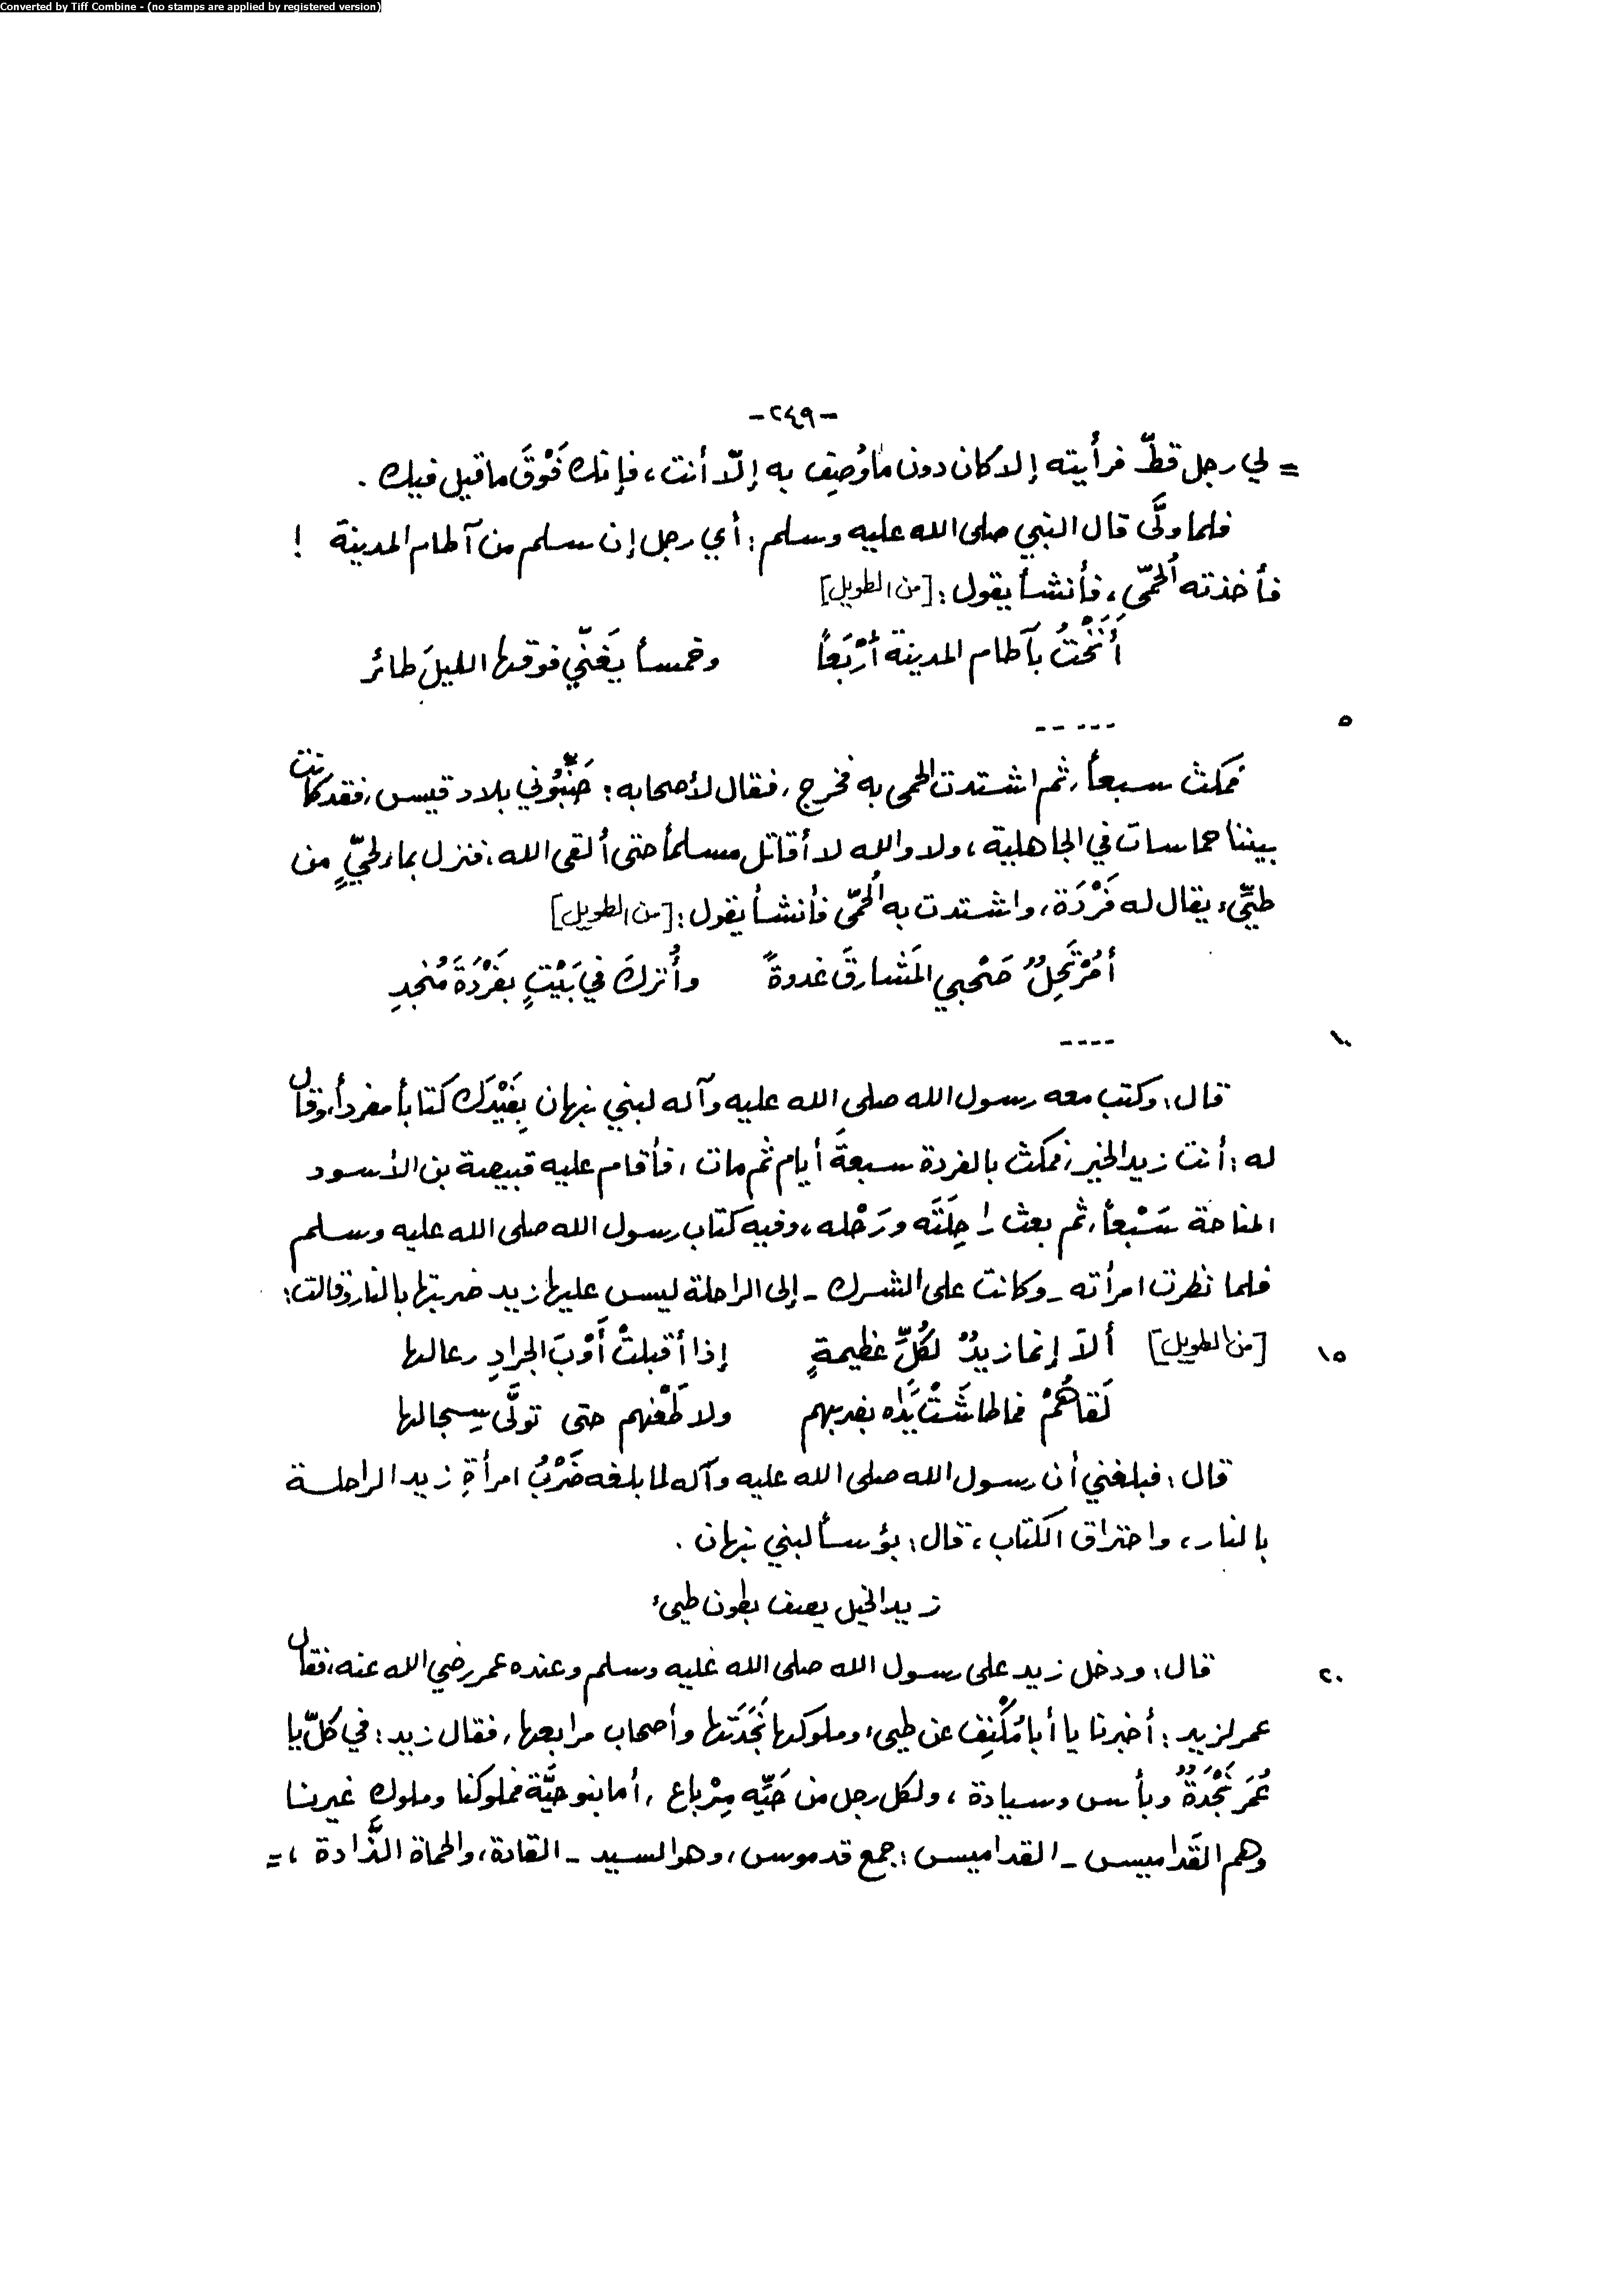 Converted by Tiff Combine - (no stamps are applied by registered version)
-٢٤٩-
= لي رجل قطّ فرأيته إلا كان دون ما وُصِف به إلّا أنت، فإنك فَوْقَ ما قيل فيك .
فلما ولَّى قال النبي صلى الله عليه وسلم : أي رجل إن سلم من آطام المدينة !
فأخذته الحُمّى ، فأنشأ يقول : [من الطويل]
أَنَخْتُ بآطام المدينة أرْبَعاً وخمسأ يَغَنّي فوقها الليلَ طائر
٥ -----
فمكث سبعاً، ثم اشتدت الحمى به فخرج ، فقال لأصحابه : جَنِّبُوني بلاد قيس ، فقد كانت
بيننا حماسات في الجاهلية ، ولا والله لا أقاتل مسلماً حتى ألقى الله ، فنزل بماء لحيٍّ من
طيِّء يقال له فَرْدَة ، واشتدت به الحُمّى فأنشأ يقول : [من الطويل]
أمُرْتَحِلٌ صَحْبي المَشارقَ غدوةً وأُتركَ في بَيْتٍ بفَرْدَةَ مُنجدِ
١٠ ----
قال : وكتب معه رسول الله صلى الله عليه وآله لبني نبهان بِفَيْدَك كتاباً مفرداً، وقال
له : أنت زيد الخير ، فمكث بالفردة سبعةَ أيام ثم مات ، فأقام عليه قبيصة بن الأسود
المناحة سَبْعاً، ثم بعث راحِلَتَه ورَحْله ، وفيه كتاب رسول الله صلى الله عليه وسلم
فلما نظرت امرأته - وكانت على الشرك - إلى الراحلة ليس عليها زيد ضربتها بالنار وقالت :
١٥ [من الطويل] ألاَ إنما زيدٌ لكُلِّ عظيمةٍ إذا أقبلتْ أَوْبَ الجرادِ رعالها
لَقاهُمْ فما طاشَتْ يَدَاه بضربهم ولا طَعْنهم حتى تولَّى سِجالها
قال : فبلغني أن رسول الله صلى الله عليه وآله لما بلغه ضَرْبُ امرأةِ زيد الراحلة
بالنار ، واحتراق الكتاب ، قال : بؤسأ لبني نبهان .
زيد الخيل يصف بطون طيىء
٢٠ قال : ودخل زيد على رسول الله صلى الله عليه وسلم وعنده عمر رضي الله عنه ، فقال
عمر لزيد : أخبرنا يا أبا مُكْنِف عن طيىء وملوكها نَجَدَتها وأصحاب مرابعها ، فقال زيد : في كلّ يا
عُمَر نَجْدَةٌ وبأس وسيادة ، ولكل رجل من حَيِّه مِرْباع ، أما بنو حيَّة فملوكنا وملوك غيرنا
وهم القَداميس - القداميس : جمع قدموس ، وهو السيد - القادة ، والحماة الذَّادة ، =